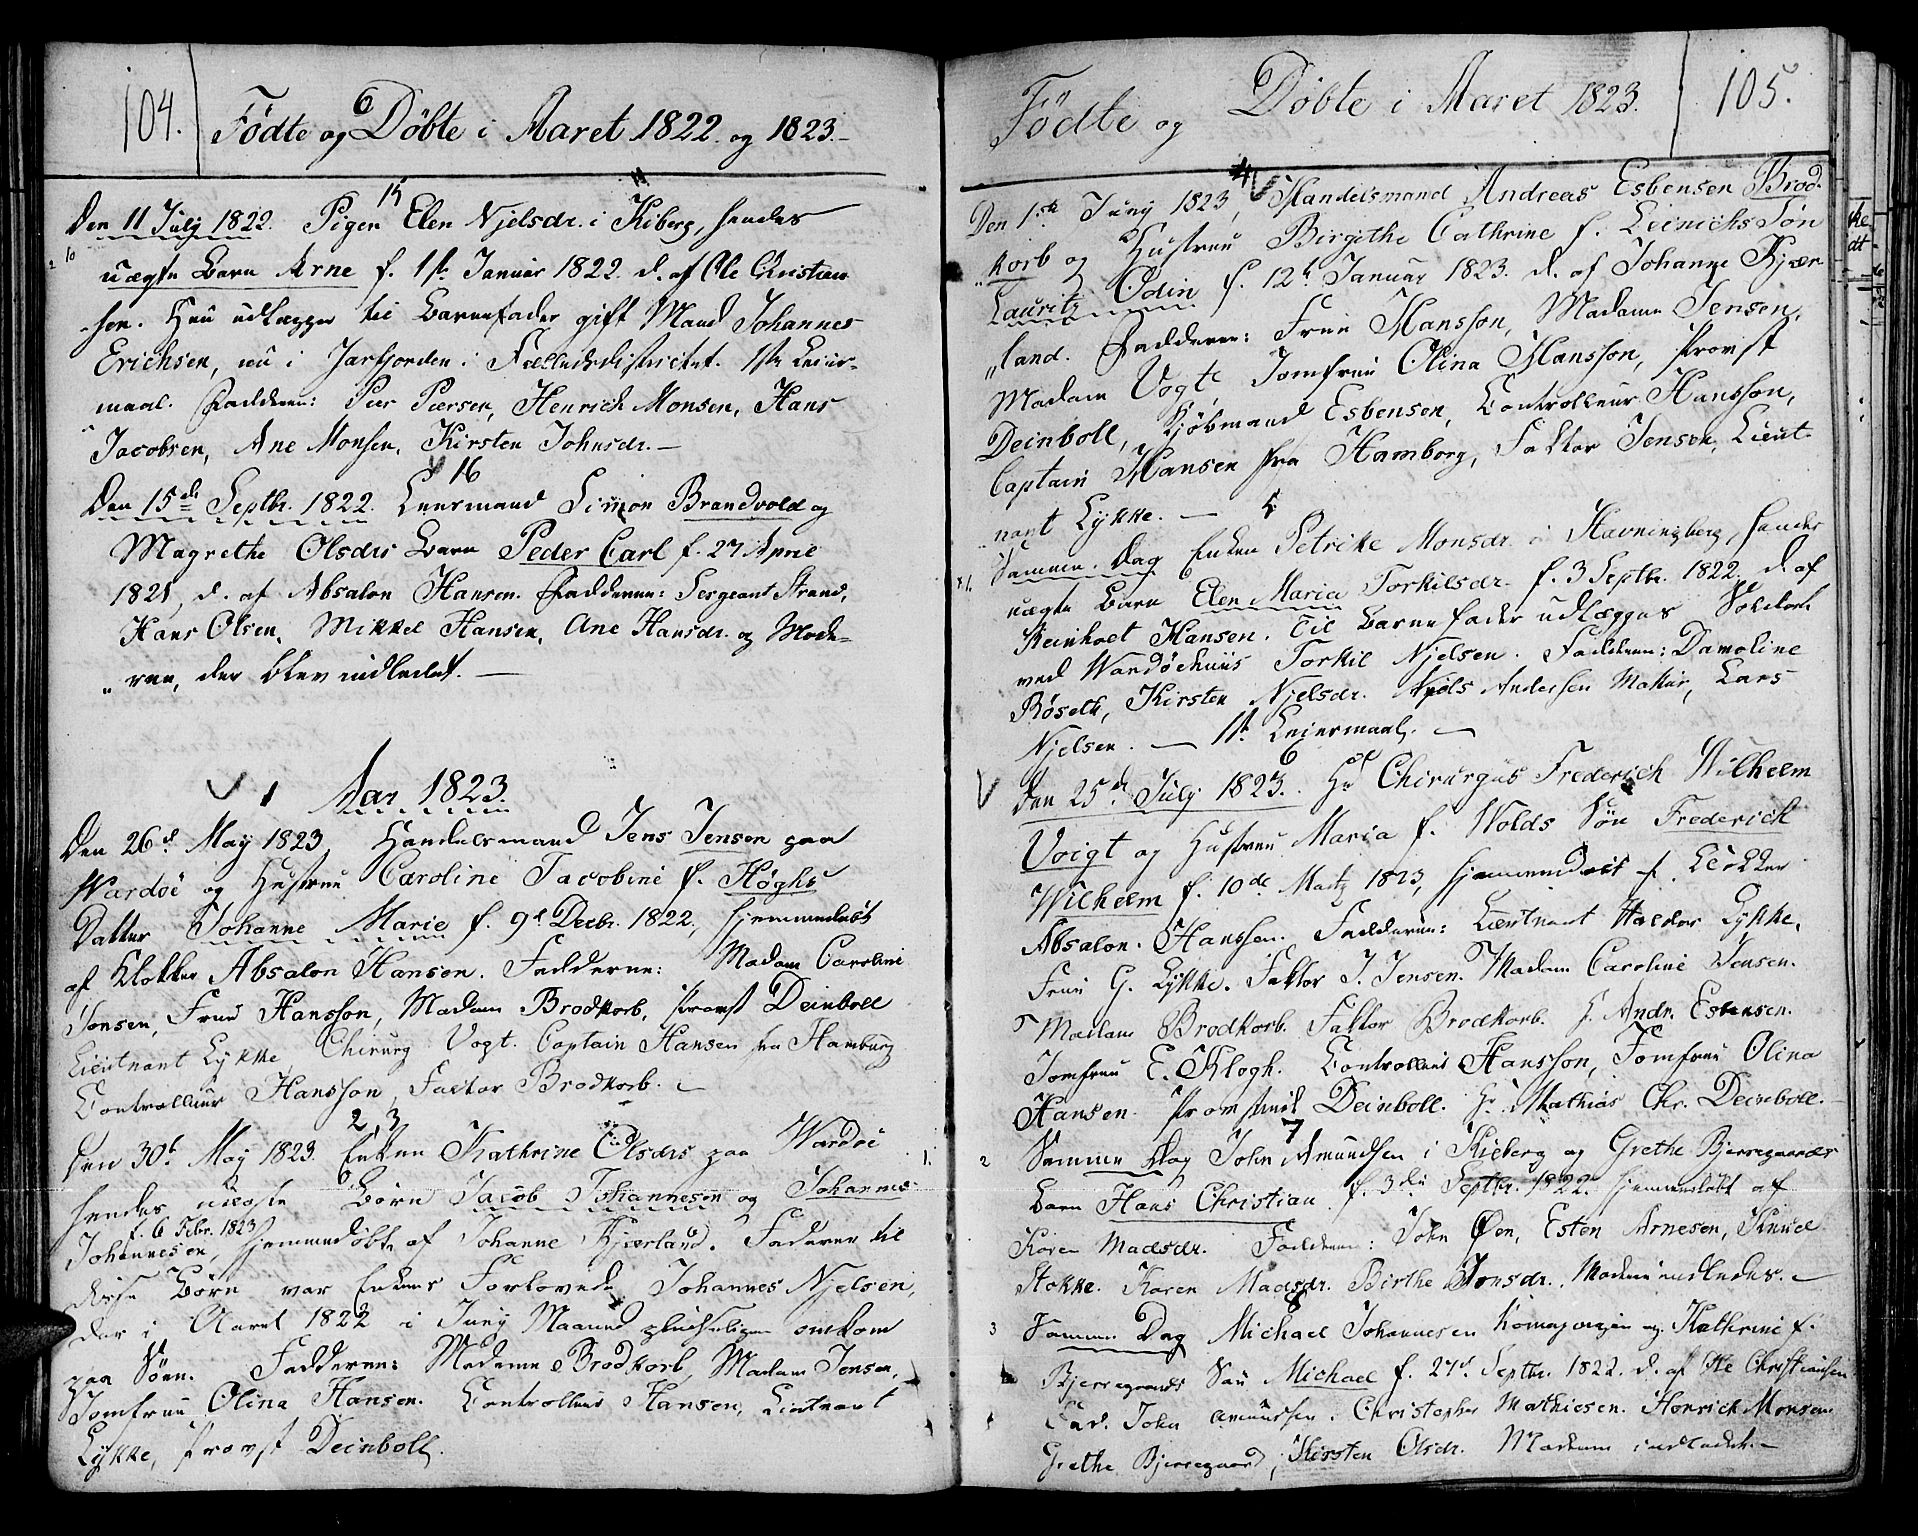 104.
Födte og Döbte i Aaret 1822 og 1823.
15
Den 11 July 1822. Pigen Elen Njelsdr. i Kiberg, hendes
uægte Barn Arne f. 1ste Januar 1822. d. af Ole Christian-
sen. Hun udlægger til Barnefader gift Mand Johannes
Erichsen, nu i Jarfjorden i Fælledsdistrictet. 1ste Leier-
maal. Fadderne: Peer Peersen, Henrich Monsen, Hans
Jacobsen, Ane Monsen, Kirsten Johnsdr.
16
Den 15de Septbr. 1822. Leermand Simon Brandvold og
Magrethe Olsdrs Barn Peder Carl f. 27 April
1821, d. af Absalon Hansen. Fadderne: Sergeant Strand,
Hans Olsen, Mikkel Hansen, Ane Hansdr. og Mode-
ren, der blev indledet.
1 Aar 1823.
Den 26d May 1823 Handelsmand Jens Jensen paa
Wardöe og Hustrue Caroline Jacobine f. Höghs
Datter Johanne Marie f. 9d Decbr. 1822, hjemmedöbt
af Klokker Absalon Hansen. Fadderne: Madam Caroline
Jensen, Frue Hansson, Madam Brodkorb, Provst Deinboll
Lieutnant Lykke, Chirurg Vogt. Captain Hansen fra Hamburg
Controlleur Hansson, Factor Brodkorb.
2, 3
Den 30t May 1823. Enken Kathrine Olsdrs paa Wardöe
hendes uægte Börn Jacob Johannesen og Johannes
f. 6 Febr. 1823
Johannesen, hjemmedöbte af Johanne Kjærland. Faderen til
disse Börn var Enkens Forlovede Johannes Njelsen,
der i Aaret 1822 i Juny Maaned omkom
paa Söen. Fadderne: Madame Brodkorb, Madam Jensen,
Jomfrue Olina Hansen. Controlleur Hansen, Lieutnant
Lykke, Provst Deinboll.
Födte og Döbte i Aaret 1823.
105.
4
Den 1ste Juny 1823, Handelsmand Andreas Esbensen Brod-
korb og Hustrue Birgithe Cathrine f. Leinichs Sön
Lauritz Odin f. 12t Januar 1823. d. af Johanne Kjær-
land. Fadderne: Frue Hansson, Madame Jensen,
Madam Vogt, Jomfrue Olina Hansson, Provst
Deinboll, Kjöbmand Esbensen, Controlleur Hansson,
Captain Hansen fra Hamborg, Faktor Jensen, Lieut-
nant Lykke.
5
Samme Dag Enken Petrike Monsdr. i Havningberg, hendes
uægte Barn Elen Maria Torkilsdr. f. 3 Septbr. 1822. d. af
Reinholt Hansen. Til Barnefader udlægges Soldat
ved Wardöehuus Torkil Njelsen. Fadderne: Damoline
Röseth, Kirsten Njelsdr. Njels Andersen Mattis, Lars
Njelsen. 1ste Leiermaal.
6
Den 25de July 1823. Hr Chirurgus Frederich Wilhelm
Voigt og Hustrue Maria f. Wolds Sön Frederich
Wilhelm f. 10de Martz 1823, hjemmedöbt af Klokker
Absalon Hanssen. Fadderne: Lieutnant Haldor Lykke,
Frue G. Lykke. Faktor J. Jensen. Madam Caroline Jensen.
Madam Brodkorb. Faktor Brodkorb. H. Andr. Esbensen.
Jomfrue E. Klogh. Controlleur Hansson, Jomfrue Olina
Hansen. Provstinde Deinboll. Hr Mathias Chr. Deinboll.
7
2 Samme Dag John Amundsen i Kieberg og Grethe Bjerregaards
Barn Hans Christian f. 3die Septbr. 1822. hjemmedöbt af
Karen Madsdr. Fadderne: John Öen, Esten Arnesen, Knud
Stokke. Karen Madsdr. Birthe Jonsdr. Moderen indledes.
8
3 Samme Dag Michael Johannesen og Kathrine f.
Bjerregaards Sön Michael f. 27d Septbr. 1822. d. af Ole Christiansen
Fad. John Amundsen. Christopher Mathiesen. Henrich Monsen
Grethe Bjerregaard, Kirsten Olsdr. Moderen indledet.